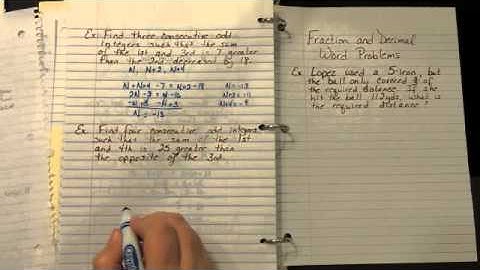 Ex: Find three consecutive odd
integers such that the sum
of the 1st and 3rd is 7 greater
than the 2nd decreased by 18.
N, N+2, N+4
N + N+4 - 7 = N+2-18
2N - 3 = N - 16
N = -13
N = -13
N+2 = -11
N+4 = -9
Ex: Find four consecutive odd integers
such that the sum of the 1st
and 4th is 25 greater than
the opposite of the 3rd.
Fraction and Decimal
Word Problems
Ex: Lopez used a 5-iron, but
the ball only covered of
the required distance. If she
hit the ball 112yds, what is
the required distance?